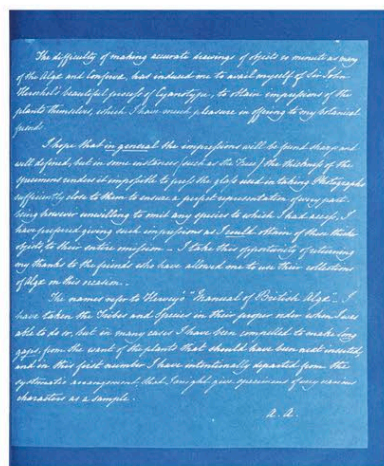 The difficulty of making accurate drawings of objects as minute as many
of the Algæ and Confervæ, has induced me to avail myself of Sir John
Herschel's beautiful process of Cyanotype, to obtain impressions of the
plants themselves, which I have much pleasure in offering to my botanical
friends.
I hope that in general the impressions will be found sharp and
well defined, but in some instances (such as the Fuci) the thickness of the
specimens renders it impossible to press the glass used in taking Photographs
sufficiently close to them to ensure a perfect representation of every part.
Being however unwilling to omit any species to which I had access, I
have preferred giving such impressions as I could obtain of these thick
objects to their entire omission. I take this opportunity of returning
my thanks to the friends who have allowed me to use their collections
of Algæ on this occasion.
The names refer to Harvey's "Manual of British Algæ" I
have taken the Tribes and Species in their proper order when I was
able to do so, but in many cases I have been compelled to make long
gaps, from the want of the plants that should have been next inserted,
and in this first number I have intentionally departed from the
systematic arrangement, that I might give specimens of very various
characters as a sample.
A. A.